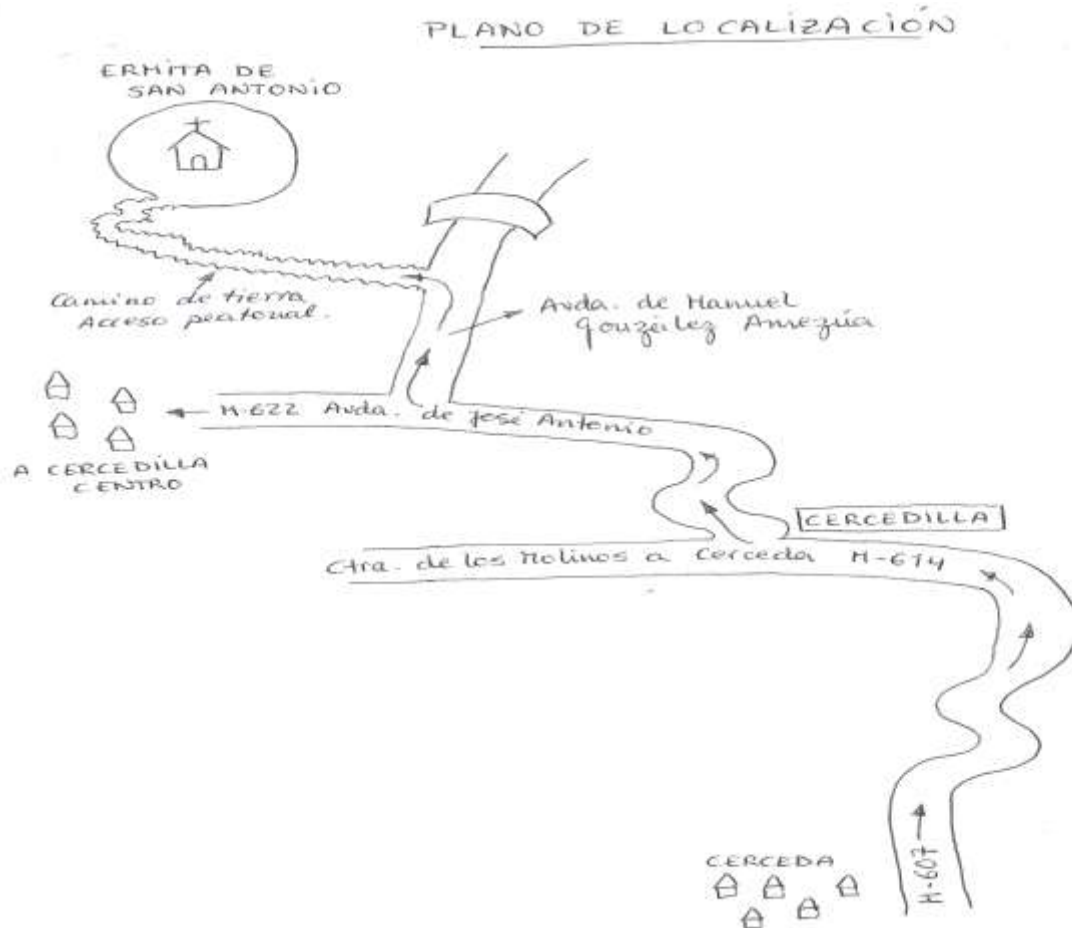 PLANO DE LOCALIZACIÓN
ERMITA DE
SAN ANTONIO
Camino de tierra
Acceso peatonal.
Avda. de Manuel
González Amezúa
M-622 Avda. de José Antonio
A CERCEDILLA
CENTRO
CERCEDILLA
Ctra. de los Molinos a Cerceda M-614
CERCEDA
M-607